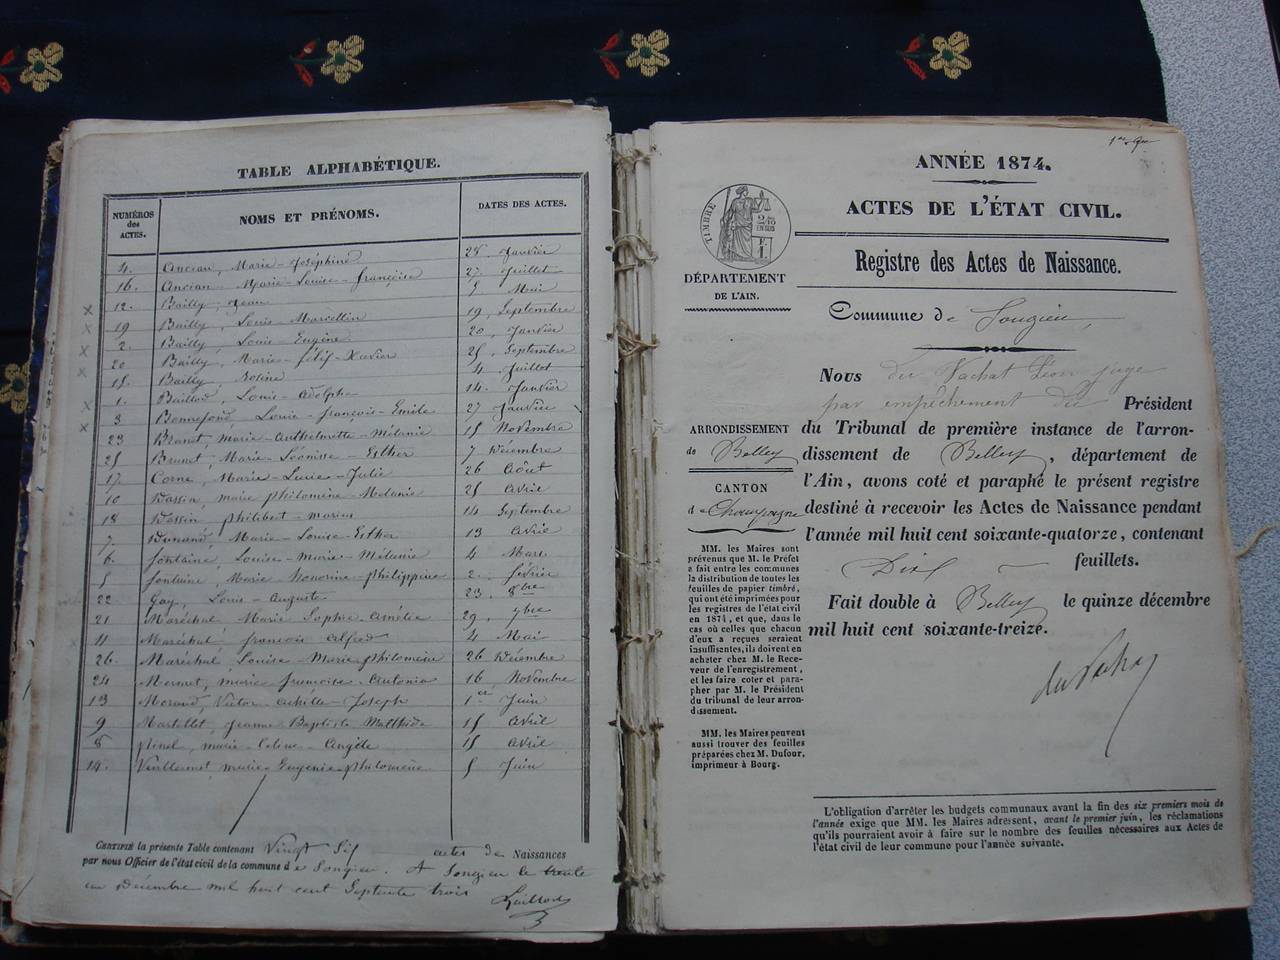 TABLE ALPHABÉTIQUE.
NUMÉROS des ACTES. NOMS ET PRÉNOMS. DATES DES ACTES.
4. Ancian, Marie-Joséphine 28. Janvier
16. Ancian Marie-Louise-françoise 27. Juillet
12. Bailly, Jean 5 Mai
19 Bailly, Louis Marcellin 19, Septembre
2. Bailly Louis Eugène 20, Janvier
20 Bailly, Marie-félix-Xavier 25, Septembre
15. Bailly, Rosine 4 Juillet
1. Louis-Adolphe 14. Janvier
3 Bonnefond, Louis-françois-Emile 27 Janvier
23 Brunet, Marie-Anthelmette-Mélanie 15 Novembre
25 Brunet, Marie-Léonisse-Esther 7 Décembre
17. Corne, Marie-Lucie-Julie 26 Août
10 marie philomène-Mélanie 25 Avril
18 philibert-marius 14 Septembre
7. Marie-Louise-Esther 13 Avril
6. fontaine, Louise-marie-Mélanie 4 Mars
5 fontaine, Marie Honorine-philippine 2. février
22 Gay, Louis-Auguste 23, 8bre
21 Maréchal Marie Sophie Amélie 29, 9bre
11 Maréchal, françois Alfred 4 Mai
26. Maréchal, Louise-Marie philomène 26 Décembre
24 Mermet, marie françoise-Antonia 16 Novembre
13 Morand, Victor-Achille-Joseph 1er Juin
9 Martellet, Jeanne-Baptiste-Mathilde 15 Avril
8 Pinel, marie-Celine-Angèle 15 Avril
14. Vuillermet, marie-Eugénie-philomène 5 Juin
CERTIFIÉ la présente Table contenant Vingt Six actes de Naissances
par nous Officier de l'état civil de la commune de Songieu. A Songieu le trente
un Décembre mil huit cent Septante trois
ANNÉE 1874.
ACTES DE L'ÉTAT CIVIL.
TIMBRE
DÉPARTEMENT
DE L'AIN.
Registre des Actes de Naissance.
Commune de Songieu,
Nous du Vachat Léon juge
par empêchement du Président
du Tribunal de première instance de l'arron-
dissement de Belley, département de
l'Ain, avons coté et paraphé le présent registre
destiné à recevoir les Actes de Naissance pendant
l'année mil huit cent soixante-quatorze, contenant
Dix feuillets.
Fait double à Belley le quinze décembre
mil huit cent soixante-treize.
du Vachat
ARRONDISSEMENT
de Belley
CANTON
de Champagne
MM. les Maires sont
prévenus que M. le Préfet
a fait entre les communes
la distribution de toutes les
feuilles de papier timbré,
qui ont été imprimées pour
les registres de l'état civil
en 1874, et que, dans le
cas où celles que chacun
d'eux a reçues seraient
insuffisantes, ils doivent en
acheter chez M. le Rece-
veur de l'enregistrement,
et les faire coter et para-
pher par M. le Président
du tribunal de leur arron-
dissement.
MM. les Maires peuvent
aussi trouver des feuilles
préparées chez M. Dufour,
imprimeur à Bourg.
L'obligation d'arrêter les budgets communaux avant la fin des six premiers mois de
l'année exige que MM. les Maires adressent, avant le premier juin, les réclamations
qu'ils pourraient avoir à faire sur le nombre des feuilles nécessaires aux Actes de
l'état civil de leur commune pour l'année suivante.